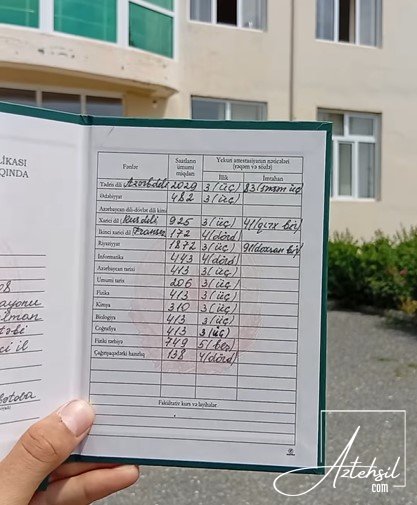 LİKASI
AQINDA
Fənlər
Saatların ümumi miqdarı
Yekun attestasiyanın nəticələri (rəqəm və sözlə)
İllik
İmtahan
Tədris dili Azərb.dili 2029 3 (üç) 83 (səksən üç)
Ədəbiyyat 482 3 (üç)
Azərbaycan dili-dövlət dili kimi
Xarici dil Rus dili 925 3 (üç) 41 (qırx bir)
İkinci xarici dil Fransız 172 4 (dörd)
Riyaziyyat 1872 3 (üç) 91 (doxsan bir)
İnformatika 443 4 (dörd)
Azərbaycan tarixi 413 3 (üç)
Ümumi tarix 206 3 (üç)
Fizika 413 3 (üç)
Kimya 310 3 (üç)
Biologiya 413 3 (üç)
Coğrafiya 413 3 (üç)
Fiziki tərbiyə 749 5 (beş)
Çağırışaqədərki hazırlıq 138 4 (dörd)
Fakültətiv kurs və layihələr
ayonu
il
Aztehsil
.com